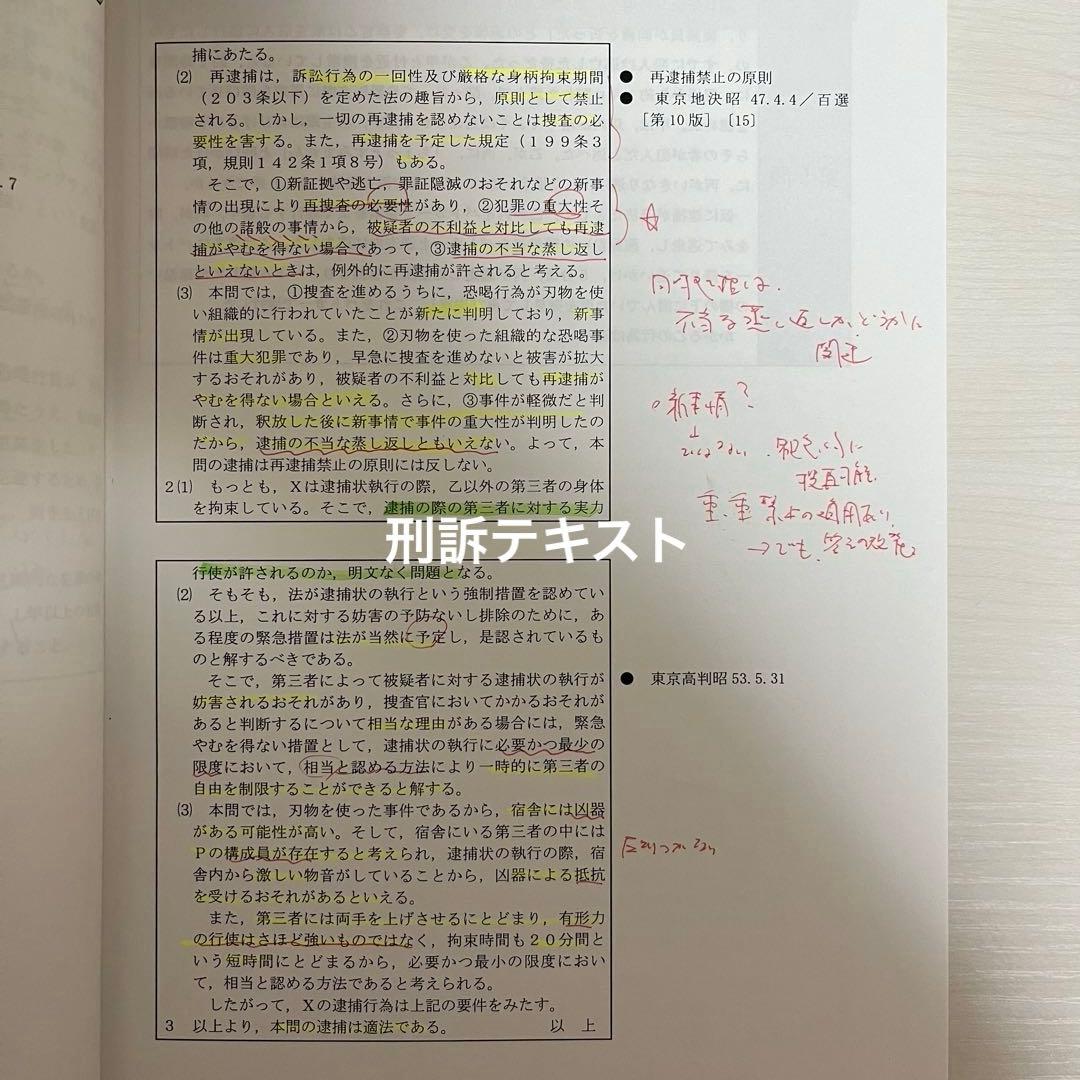 捕にあたる。
(2) 再逮捕は，訴訟行為の一回性及び厳格な身柄拘束期間
（２０３条以下）を定めた法の趣旨から，原則として禁止
される。しかし，一切の再逮捕を認めないことは捜査の必
要性を害する。また，再逮捕を予定した規定（１９９条３
項，規則１４２条１項８号）もある。
そこで，①新証拠や逃亡，罪証隠滅のおそれなどの新事
情の出現により再捜査の必要性があり，②犯罪の重大性そ
の他の諸般の事情から，被疑者の不利益と対比しても再逮
捕がやむを得ない場合であって，③逮捕の不当な蒸し返し
といえないときは，例外的に再逮捕が許されると考える。
(3) 本問では，①捜査を進めるうちに，恐喝行為が刃物を使
い組織的に行われていたことが新たに判明しており，新事
情が出現している。また，②刃物を使った組織的な恐喝事
件は重大犯罪であり，早急に捜査を進めないと被害が拡大
するおそれがあり，被疑者の不利益と対比しても再逮捕が
やむを得ない場合といえる。さらに，③事件が軽微だと判
断され，釈放した後に新事情で事件の重大性が判明したの
だから，逮捕の不当な蒸し返しともいえない。よって，本
問の逮捕は再逮捕禁止の原則には反しない。
2(1) もっとも，Ｘは逮捕状執行の際，乙以外の第三者の身体
を拘束している。そこで，逮捕の際の第三者に対する実力
● 再逮捕禁止の原則
● 東京地決昭 47.4.4／百選
［第 10 版］〔15〕
不当な蒸し返しかどうかに
関連
○新事情？
刑訴テキスト
行使が許されるのか，明文なく問題となる。
(2) そもそも，法が逮捕状の執行という強制措置を認めてい
る以上，これに対する妨害の予防ないし排除のために，あ
る程度の緊急措置は法が当然に予定し，是認されているも
のと解するべきである。
そこで，第三者によって被疑者に対する逮捕状の執行が
妨害されるおそれがあり，捜査官においてかかるおそれが
あると判断するについて相当な理由がある場合には，緊急
やむを得ない措置として，逮捕状の執行に必要かつ最少の
限度において，相当と認める方法により一時的に第三者の
自由を制限することができると解する。
(3) 本問では，刃物を使った事件であるから，宿舎には凶器
がある可能性が高い。そして，宿舎にいる第三者の中には
Ｐの構成員が存在すると考えられ，逮捕状の執行の際，宿
舎内から激しい物音がしていることから，凶器による抵抗
を受けるおそれがあるといえる。
また，第三者には両手を上げさせるにとどまり，有形力
の行使はさほど強いものではなく，拘束時間も２０分間と
いう短時間にとどまるから，必要かつ最小の限度におい
て，相当と認める方法であると考えられる。
したがって，Ｘの逮捕行為は上記の要件をみたす。
3 以上より，本問の逮捕は適法である。 以 上
● 東京高判昭 53.5.31